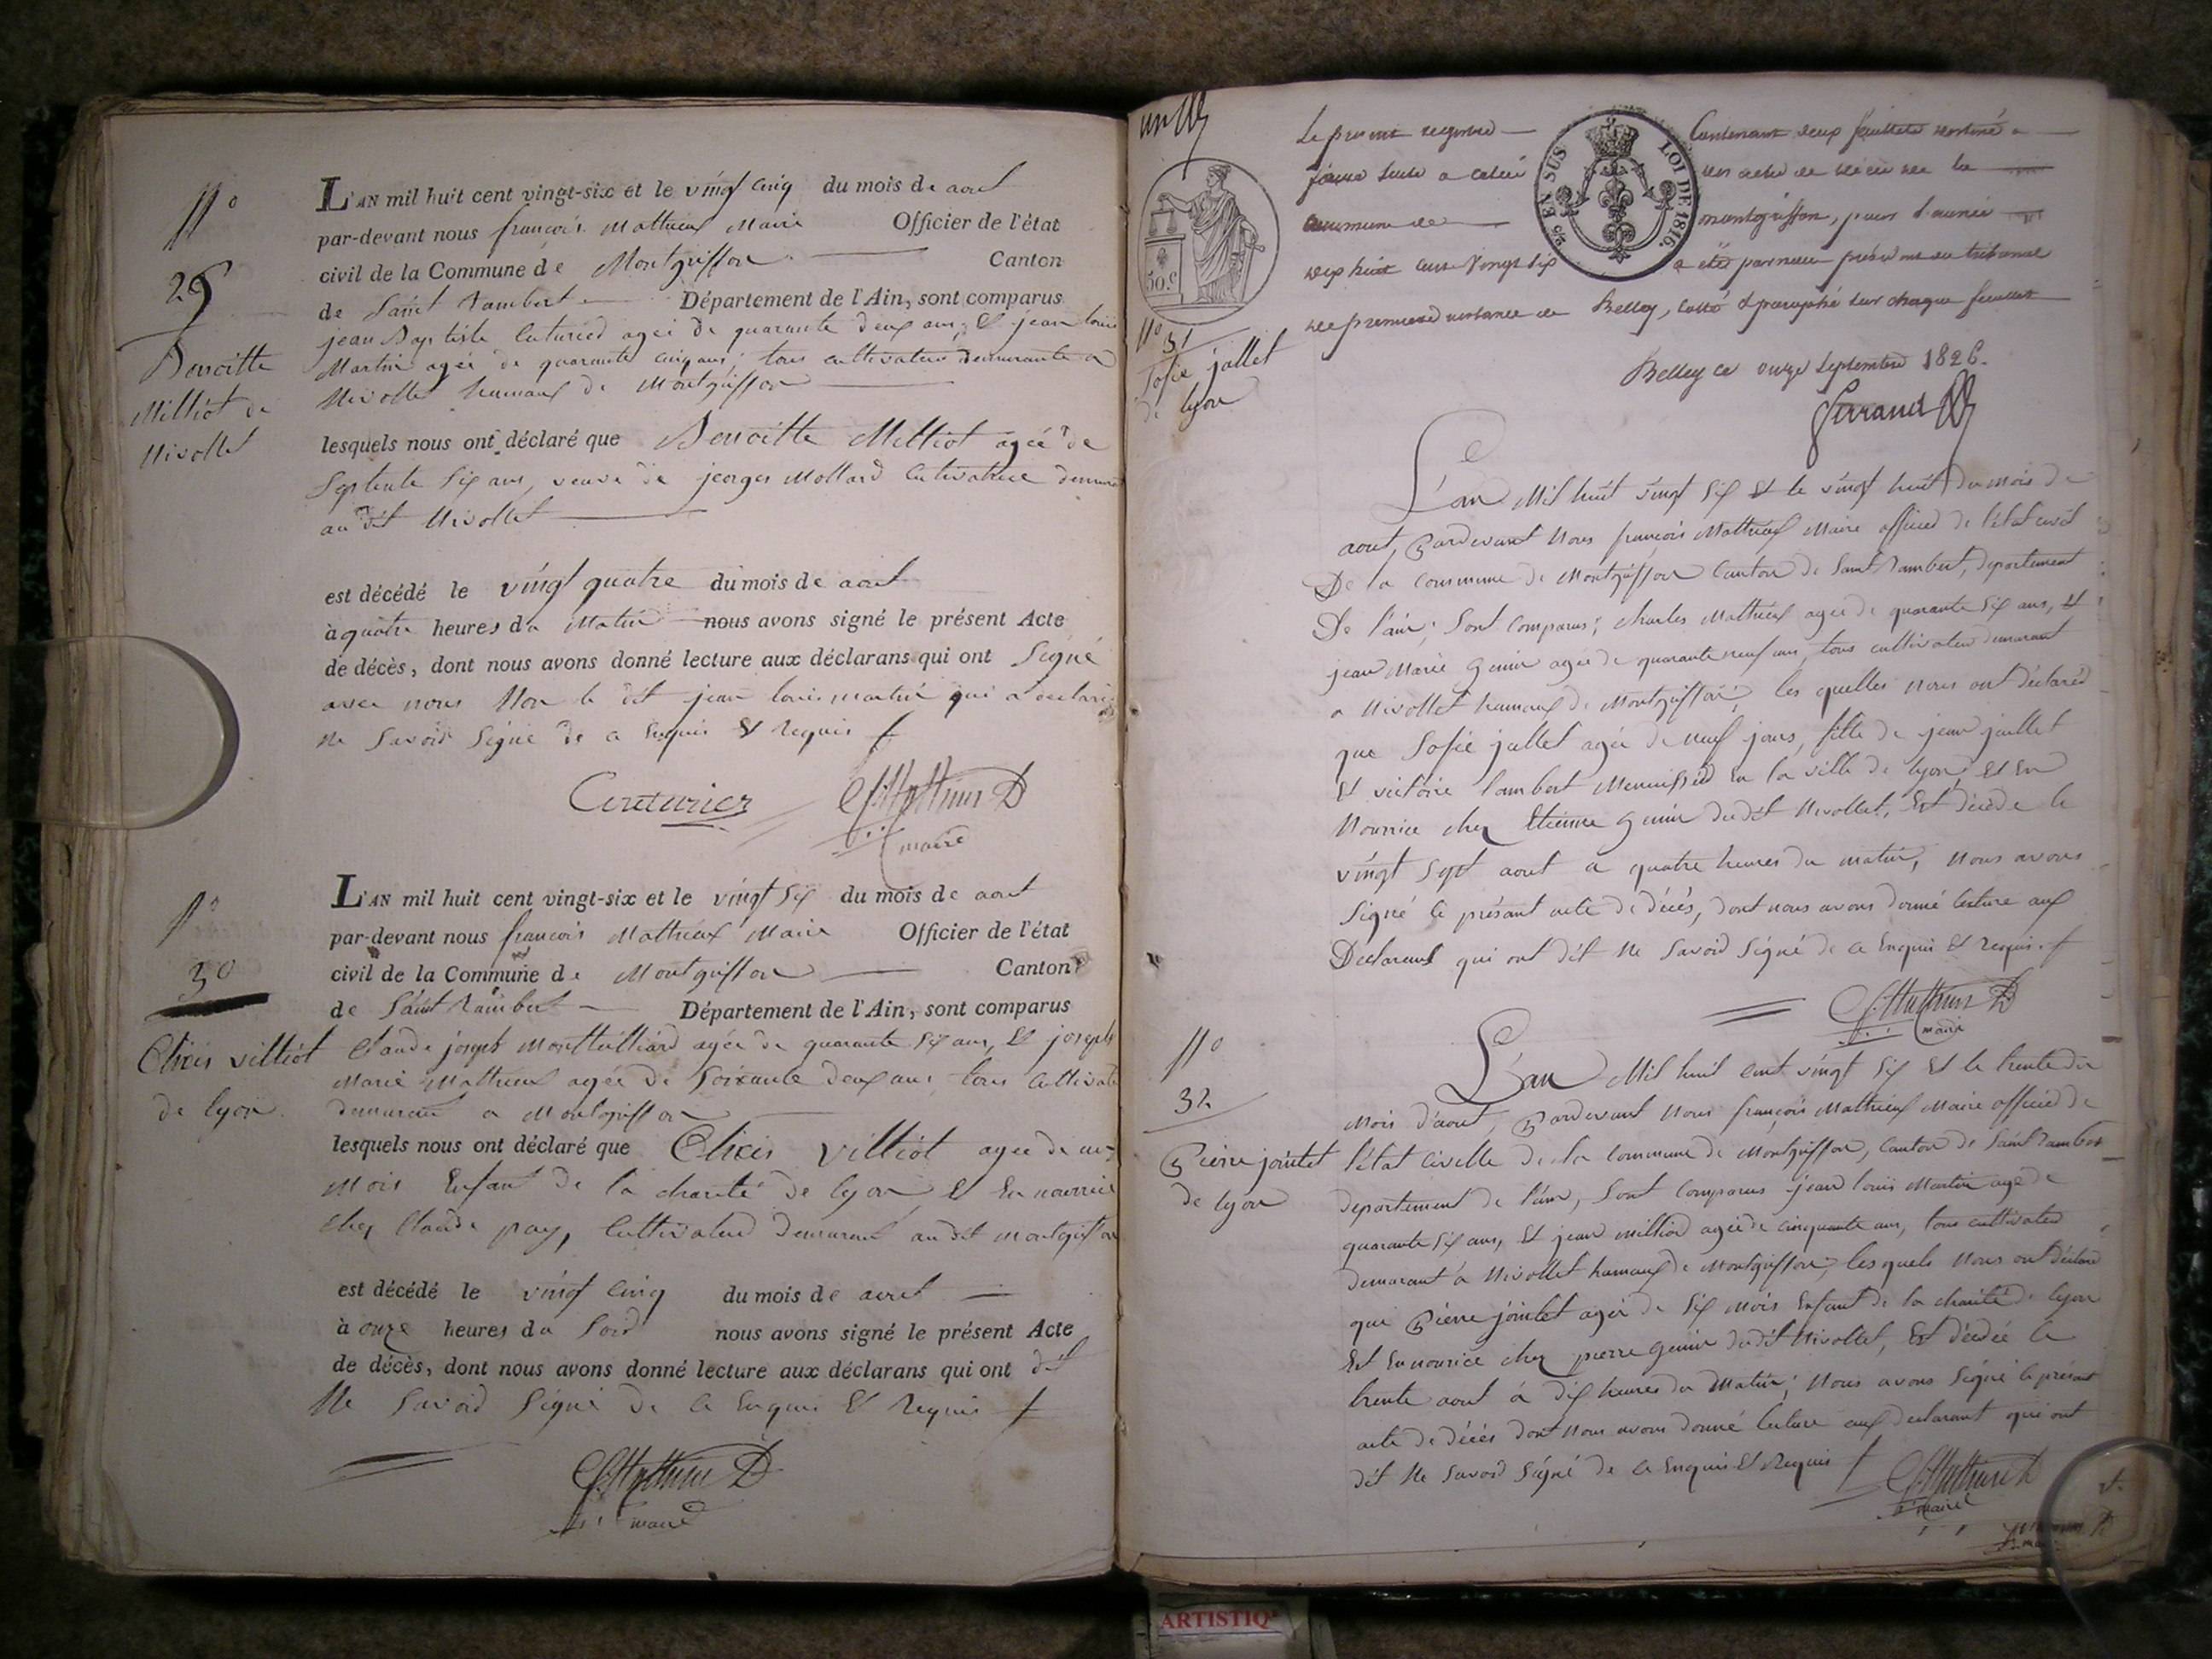 N°
29
Benoitte
Milliot de
Nivollet
L'AN mil huit cent vingt-six et le vingt cinq du mois de aout
par-devant nous françois Mathieux Maire Officier de l'état
civil de la Commune de Montgriffon Canton
de Saint Rambert Département de l'Ain, sont comparus
jean Baptiste Cuturier agéé de quarante deux ans, et jean louis
Martin agéé de quarante cinq ans tous cultivateur demeurante a
Nivollet hameaux de Montgriffon
lesquels nous ont déclaré que Benoitte Milliot agéé de
septente six ans, veuve de jeorges Mollard cultivatrice demeurant
au dit Nivollet
est décédé le vingt quatre du mois de aout
à quatre heures du Matin nous avons signé le présent Acte
de décès, dont nous avons donné lecture aux déclarans qui ont Signé
avec nous Non le dit jean louis martin qui a declaré
Ne Savoir Signé de ce Enquis et Requis
Couturier F. Mathieux
maire
N°
30
villiot
de lyon
L'AN mil huit cent vingt-six et le vingt Six du mois de aout
par-devant nous françois Mathieux Maire Officier de l'état
civil de la Commune de Montgriffon Canton
de Saint Rambert Département de l'Ain, sont comparus
Claude joseph agéé de quarante Six ans, et joseph
Marie Mathieux agéé de Soixante deux ans tous Cultivateur
demeurant a Montgriffon
lesquels nous ont déclaré que villiot agee de un
Mois Enfant de la charité de lyon et En nourrice
chez Claude pay, Cultivateur demeurant au dit montgriffon
est décédé le vingt cinq du mois de aout
à onze heures du Soir nous avons signé le présent Acte
de décès, dont nous avons donné lecture aux déclarans qui ont dit
Ne Savoir Signé de ce Enquis et Requis
F. Mathieux
maire
Le présent registre Contenant deux feuillets destiné a
faire suite a celui des actes de décès de la
commune de montgriffon, pour l'année
dix huit cent vingt six a été par nous président du tribunal
de premiere instance de Belley, cotté & paraphé sur chaque feuillet
Belley ce onze Septembre 1826.
Ferrand
2/10 EN SUS LOI DE 1816.
50.C
N°
31
Sofie jallet
de lyon
L'an Mil huit vingt Six et le vingt huit du mois de
aout, Pardevant Nous françois Mathieux Maire officier de l'état civil
De la commune de Montgriffon Canton de Saint Rambert, departement
De l'ain; Sont comparus; charles Mathieux agéé de quarante Six ans, et
jean Marie Genin agéé de quarante neuf ans, tous cultivateur demurant
a Nivollet hameaux de Montgriffon; les quelles nous ont déclaréd
que Sofie jallet agéé de neuf jours, fille de jean jaillet
Et victoire lambert En la ville de lyon, et En
Nourrice chez Etienne Genin dudit Nivollet, Est décéde le
vingt Sept aout a quatre heures du matin, Nous avons
Signé le présant acte de décès, dont nous avons donné lecture aux
Declarant qui ont dit Ne Savoir Signé de ce Enquis et requis
F. Mathieux
maire
N°
32
Pierre jointet
de lyon
L'an Mil huit cent vingt Six et le trente du
Mois d'aout, Pardevant Nous françois Mathieux Maire officier de
l'état civille de la commune de Montgriffon, canton de Saint Rambert
departement de l'ain, Sont comparus jean louis Martin agé de
quarante Six ans, et jean milliod agéé de cinquante ans, tous cultivateur
demurant a Nivollet hameaux de Montgriffon, lesquels Nous ont déclaré
que Pierre jointet agéé de Six Mois Enfant de la charité de lyon
Est En nourice chez pierre Genin dudit Nivollet, Est décédé le
trente aout à dix heures du Matin; Nous avons Signé le présant
acte de décès dont Nous avons donné lecture aux declarant qui ont
dit Ne Savoir Signé de ce Enquis et Requis F. Mathieux
maire
ARTISTIQ